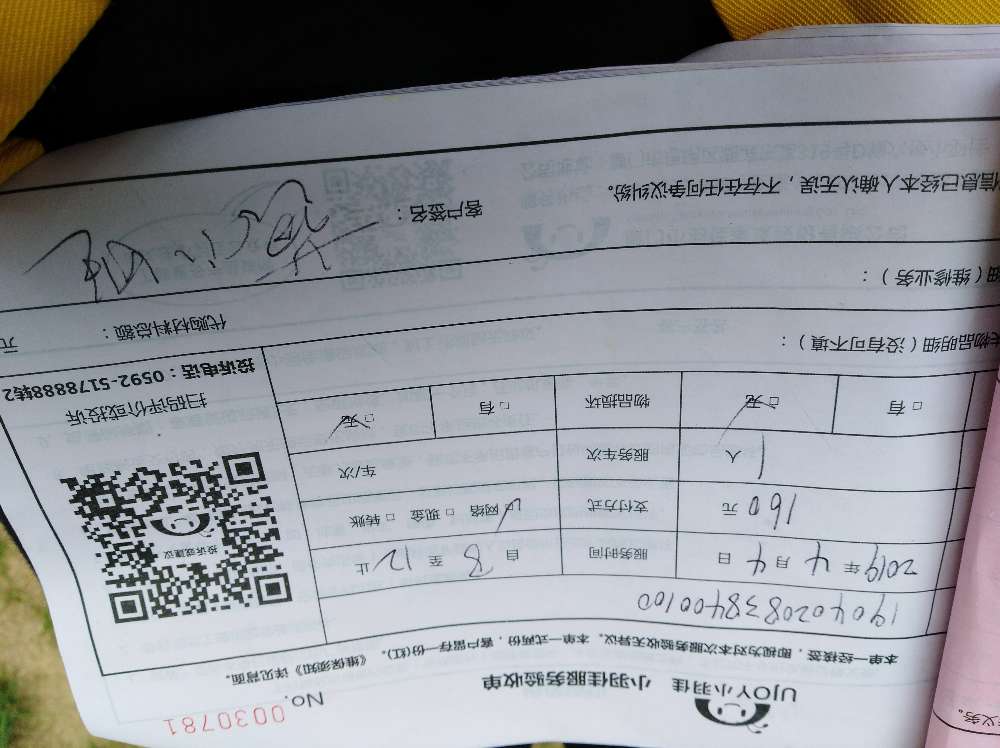 UJOY小羽佳 小羽佳服务验收单
No. 0030781
本单一经接签，即视为对本次服务验收无异议。本单一式两份，客户留存一份(红)。《维保须知》详见背面。
1904020838400100
2019年4月4日 服务时间 自8至12止
160元 支付方式 □网络 □现金 □转账
1人 服务车次 车/次
□有 □无 物品损坏 □有 □无
投诉或建议
扫码评价或投诉
投诉电话：0592-5178888转2
物品明细（没有可不填）：
代购材料总额： 元
细（维修业务）：
信息已经本人确认无误，不存在任何争议纠纷。
客户签名：
义务。